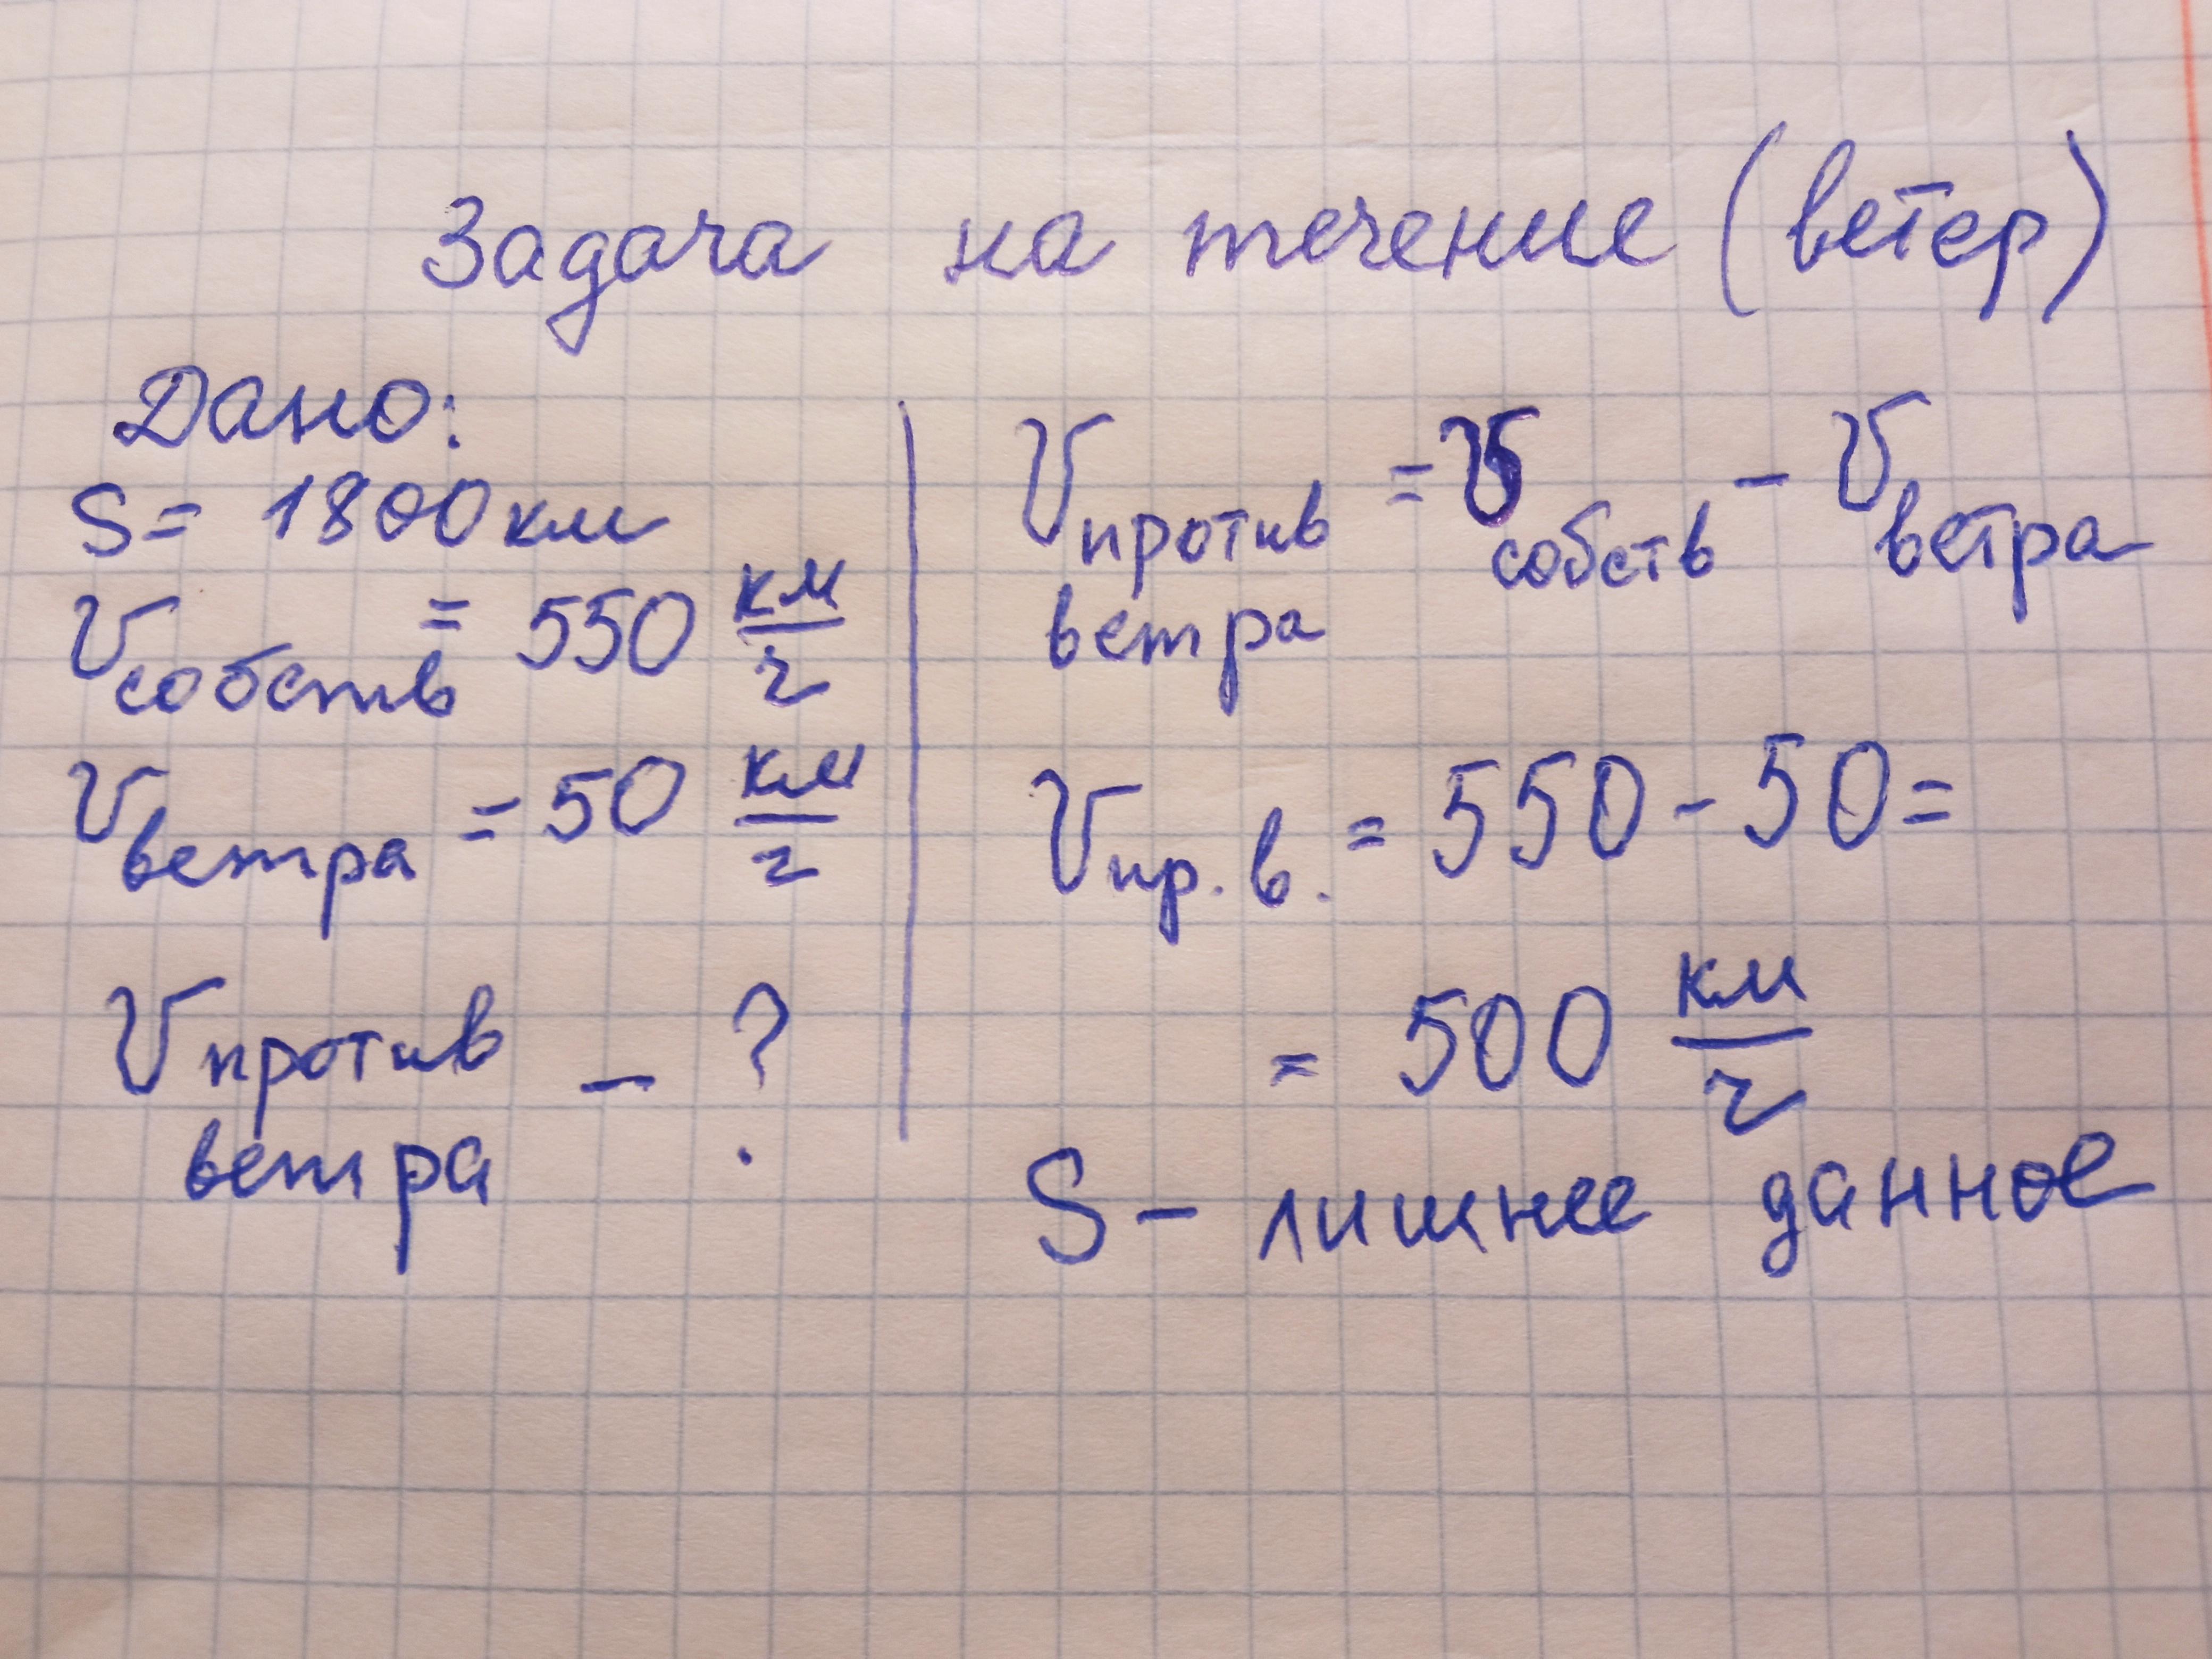 Задача на течение (ветер)
Дано:
S = 1800 км
V собств = 550 км/ч
V ветра = 50 км/ч
V против ветра - ?
V против ветра = V собств - V ветра
V пр. в. = 550 - 50 =
= 500 км/ч
S - лишнее данное